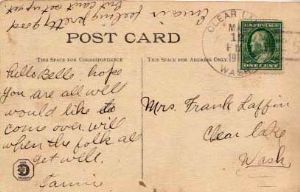 feeling pretty good
but cant eat yet
POST CARD
THIS SPACE FOR CORRESPONDENCE
THIS SPACE FOR ADDRESS ONLY.
CLEAR
WASH
ONE CENT
Hello Belle hope
you are all well
would like to
come over will
when the folk all
get well.
Mrs. Frank Laffin
Clear Lake
Wash